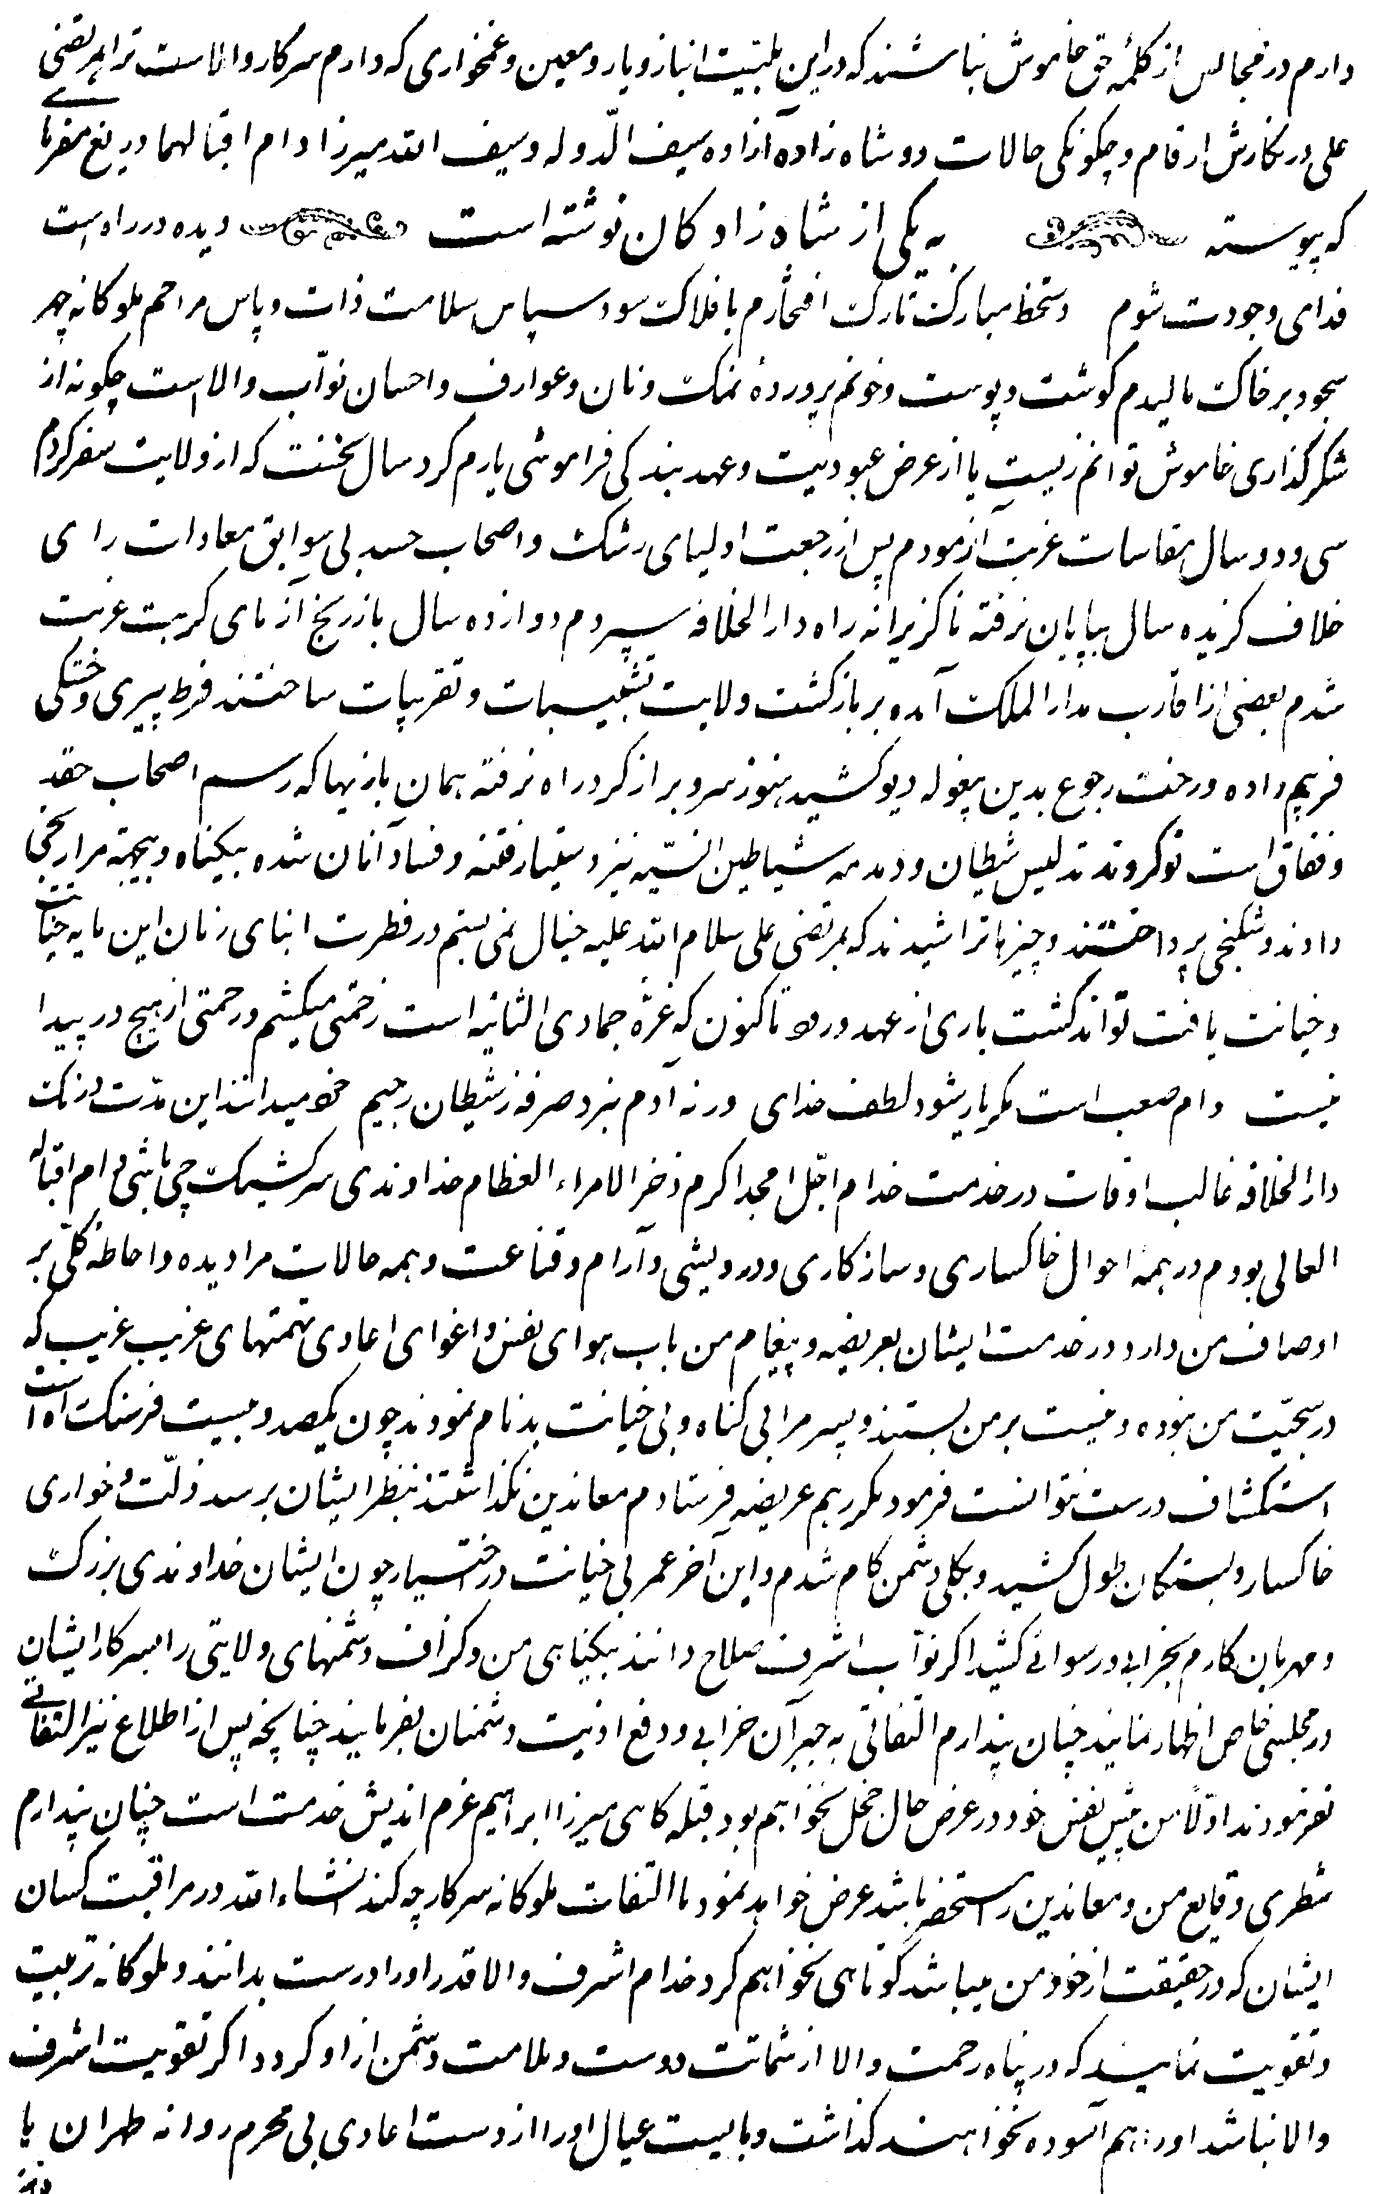 دارم در مجالس از کلمهٔ حق خاموش نباشند که در این بلیت انباز و یار و معین و غمخواری که دارم سرکار والاست ترا بمرتضی
علی در نگارش ارقام و چگونگی حالات دو شاه زاده آزاده سیف الدّوله و سیف الله میرزا دام اقبالهما دریغ مفرمای
که پیوسته دیده در راه است
به یکی از شاه زادگان نوشته است
فدای وجودت شوم دستخط مبارکت تارک افتخارم بافلاک سود سپاس سلامت ذات و پاس مراحم ملوکانه چهر
سجود بر خاک مالیدم گوشت و پوست و خونم پروردهٔ نمک و نان و عوارف و احسان نوّاب والاست چگونه از
شکرگذاری خاموش توانم زیست یا از عرض عبودیت و عهد بندگی فراموشی یارم کرد سال نخست که از ولایت سفر کردم
سی و دو سال مقاسات غربت آزمودم پس از رجعت اولیای رشک و اصحاب حسد بی سوابق معادات رای
خلاف گزیده سال بپایان نرفته ناگزیرانه راه دارالخلافه سپردم دوازده سال باز رنج آزمای کربت غربت
شدم بعضی از اقارب بدار الملک آمده بر بازگشت ولایت تشبیبات و تقریبات ساختند فرط پیری و خستگی
فریبم داده و رخت رجوع بدین بیغوله دیو کشید هنوز سر و بر از گرد راه نرفته همان بازیها که رسم اصحاب حقد
و نفاق است نو کردند تدلیس شیطان و دمدمه شیاطین الانسیّه نیز دستیار فتنه و فساد آنان شده بیگناه و بیجهة مرا رنجی
دادند و شکنجی پرداختند و چیزها تراشیدند که بمرتضی علی سلام الله علیه خیال نمی بستم در فطرت ابنای زمان این مایه خباثت
و خیانت یافت تواند گشت باری از عهد ورود تاکنون که غرّه جمادی الثانیه است زحمتی میکشم و رحمتی از هیچ در پیدا
نیست دام صعب است مگر یار شود لطف خدای ورنه آدم نبرد صرفه ز شیطان رجیم خود میدانند این مدّت درنگ
دارالخلافه غالب اوقات در خدمت خدام اجل امجد اکرم ذخر الامراء العظام خداوندی سرکشیکچی باشی دام اقباله
العالی بودم در همهٔ احوال خاکساری و سازکاری و درویشی و آرام و قناعت و همه حالات مرا دیده و احاطه کلّی بر
اوصاف من دارد در خدمت ایشان بعریضه و پیغام من باب هوای نفس و اغوای اعادی تهمتهای عریب غریب که
در سجیّت من نبوده و نیست بر من بستند و پسر مرا بی گناه و بی خیانت بدنام نمودند چون یکصد و بیست فرسنگ راه است
استکشاف درست نتوانست فرمود مکرر هم عریضه فرستادم معاندین نگذاشتند بنظر ایشان برسد ذلّت و خواری
خاکسار و بستگان طول کشید و بکلی دشمن کام شدم و این آخر عمر بی خیانت در اختیار چون ایشان خداوندی بزرگ
و مهربان کارم بخرابی و رسوائی کشید اگر نوّاب اشرف صلاح دانند بیگناهی من و گزاف دشمنهای ولایتی را بسرکار ایشان
در مجلسی خاص اظهار نمایند چنان پندارم التفاتی به جبر آن خرابی و دفع اذیت دشمنان بفرمایند چنانچه پس از اطلاع نیز التفاتی
نفرمودند اوّلا من پیش نفس خود در عرض حال خجل نخواهم بود قبله گاهی میرزا ابراهیم عزم اندیش خدمت است چنان پندارم
شطری وقایع من و معاندین را مستحضر باشد عرض خواهد نمود تا التفات ملوکانه سرکار چه کند انشاء الله در مراقبت کسان
ایشان که در حقیقت از خود من میباشد کوتاهی نخواهم کرد خدام اشرف والا قدر او را درست بدانند و ملوکانه تربیت
و تقویت نمایند که در پناه رحمت والا از شماتت دوست و ملامت دشمن آزاد گردد اگر تقویت اشرف
والا نباشد او را هم آسوده نخواهند گذاشت و بایست عیال او را از دست اعادی بی محرم روانه طهران یا